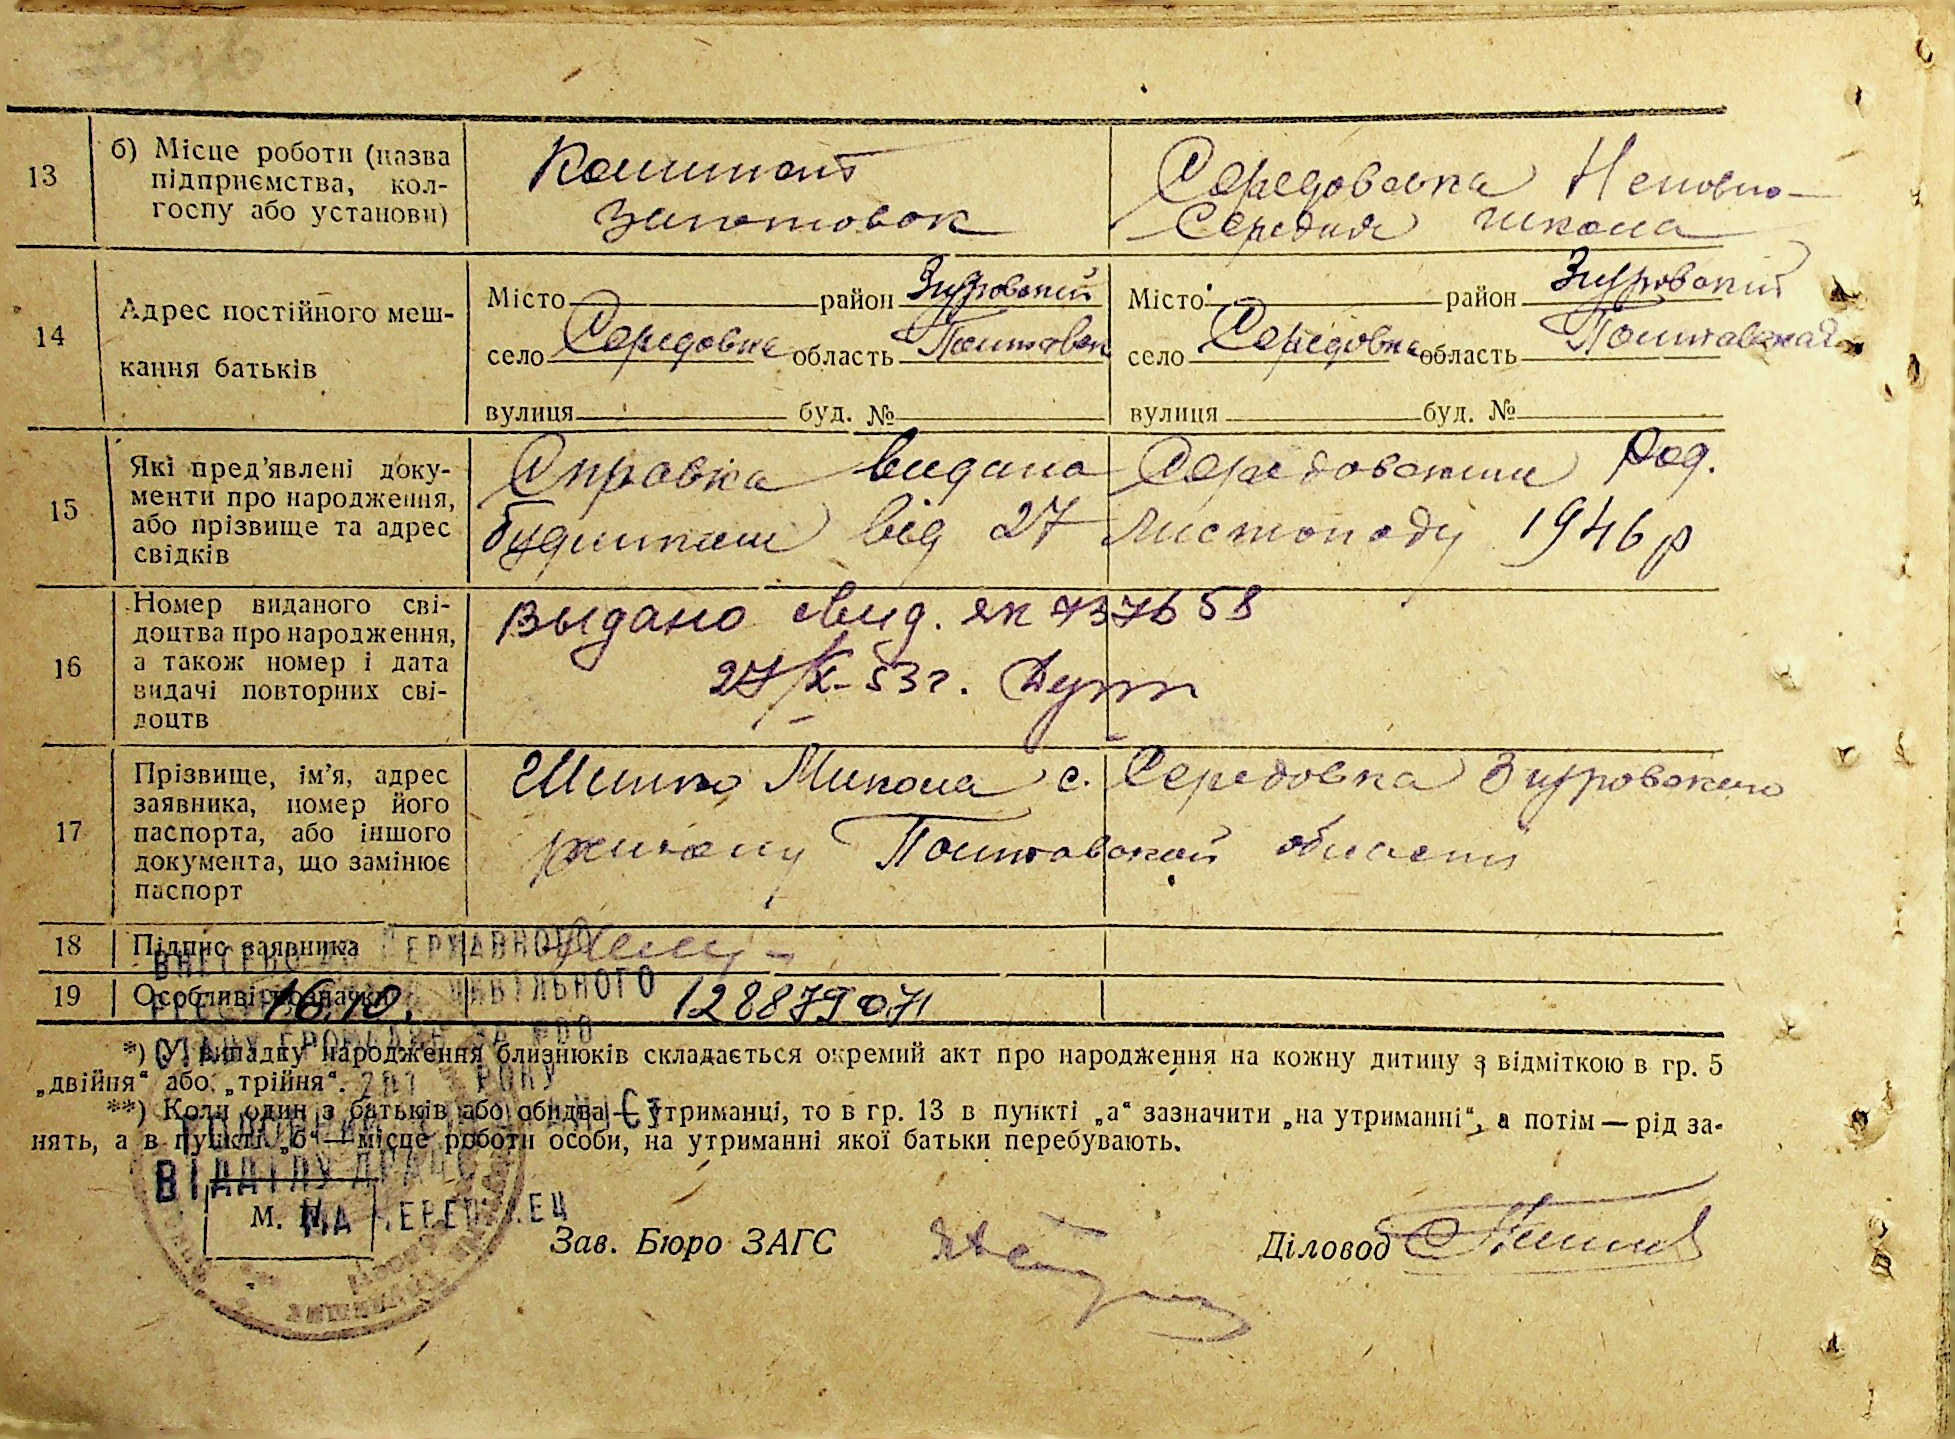 13
б) Місце роботи (назва
підприємства, кол-
госпу або установи)
Комитет
заготовок
Середовська Неповно-
Середня школа
14
Адрес постійного меш-
кання батьків
Місто район Згуровский
село Середовка область Полтавск
вулиця буд. №
Місто район Згуровский
село Середовка область Полтавская
вулиця буд. №
15
Які пред'явлені доку-
менти про народження,
або прізвище та адрес
свідків
Справка видана Середовским Род.
будинком від 27 листопаду 1946 р
16
Номер виданого сві-
доцтва про народження,
а також номер і дата
видачі повторних сві-
доцтв
Выдано свид. ЯК 737658
27/X-53г.
17
Прізвище, ім'я, адрес
заявника, номер його
паспорта, або іншого
документа, що замінює
паспорт
Шишко Микола с. Середовка Згуровского
району Полтавской области
18
Підпис заявника
19
Особливі позначки
16.10.
128879071
ВНЕСЕНО ДО ДЕРЖАВНОГО
ЦИВІЛЬНОГО
СТАНУ ГРОМАДЯН ЗА №00
201 РОКУ
ГОЛОВНИЙ СПЕЦІАЛІСТ
ВІДДІЛУ ДРАЦС
*) У випадку народження близнюків складається окремий акт про народження на кожну дитину з відміткою в гр. 5
„двійня“ або „трійня“.
**) Коли один з батьків або обидва — утриманці, то в гр. 13 в пункті „а“ зазначити „на утриманні“, а потім — рід за-
нять, а в пункті „б“ — місце роботи особи, на утриманні якої батьки перебувають.
М. П.
Зав. Бюро ЗАГС
Діловод